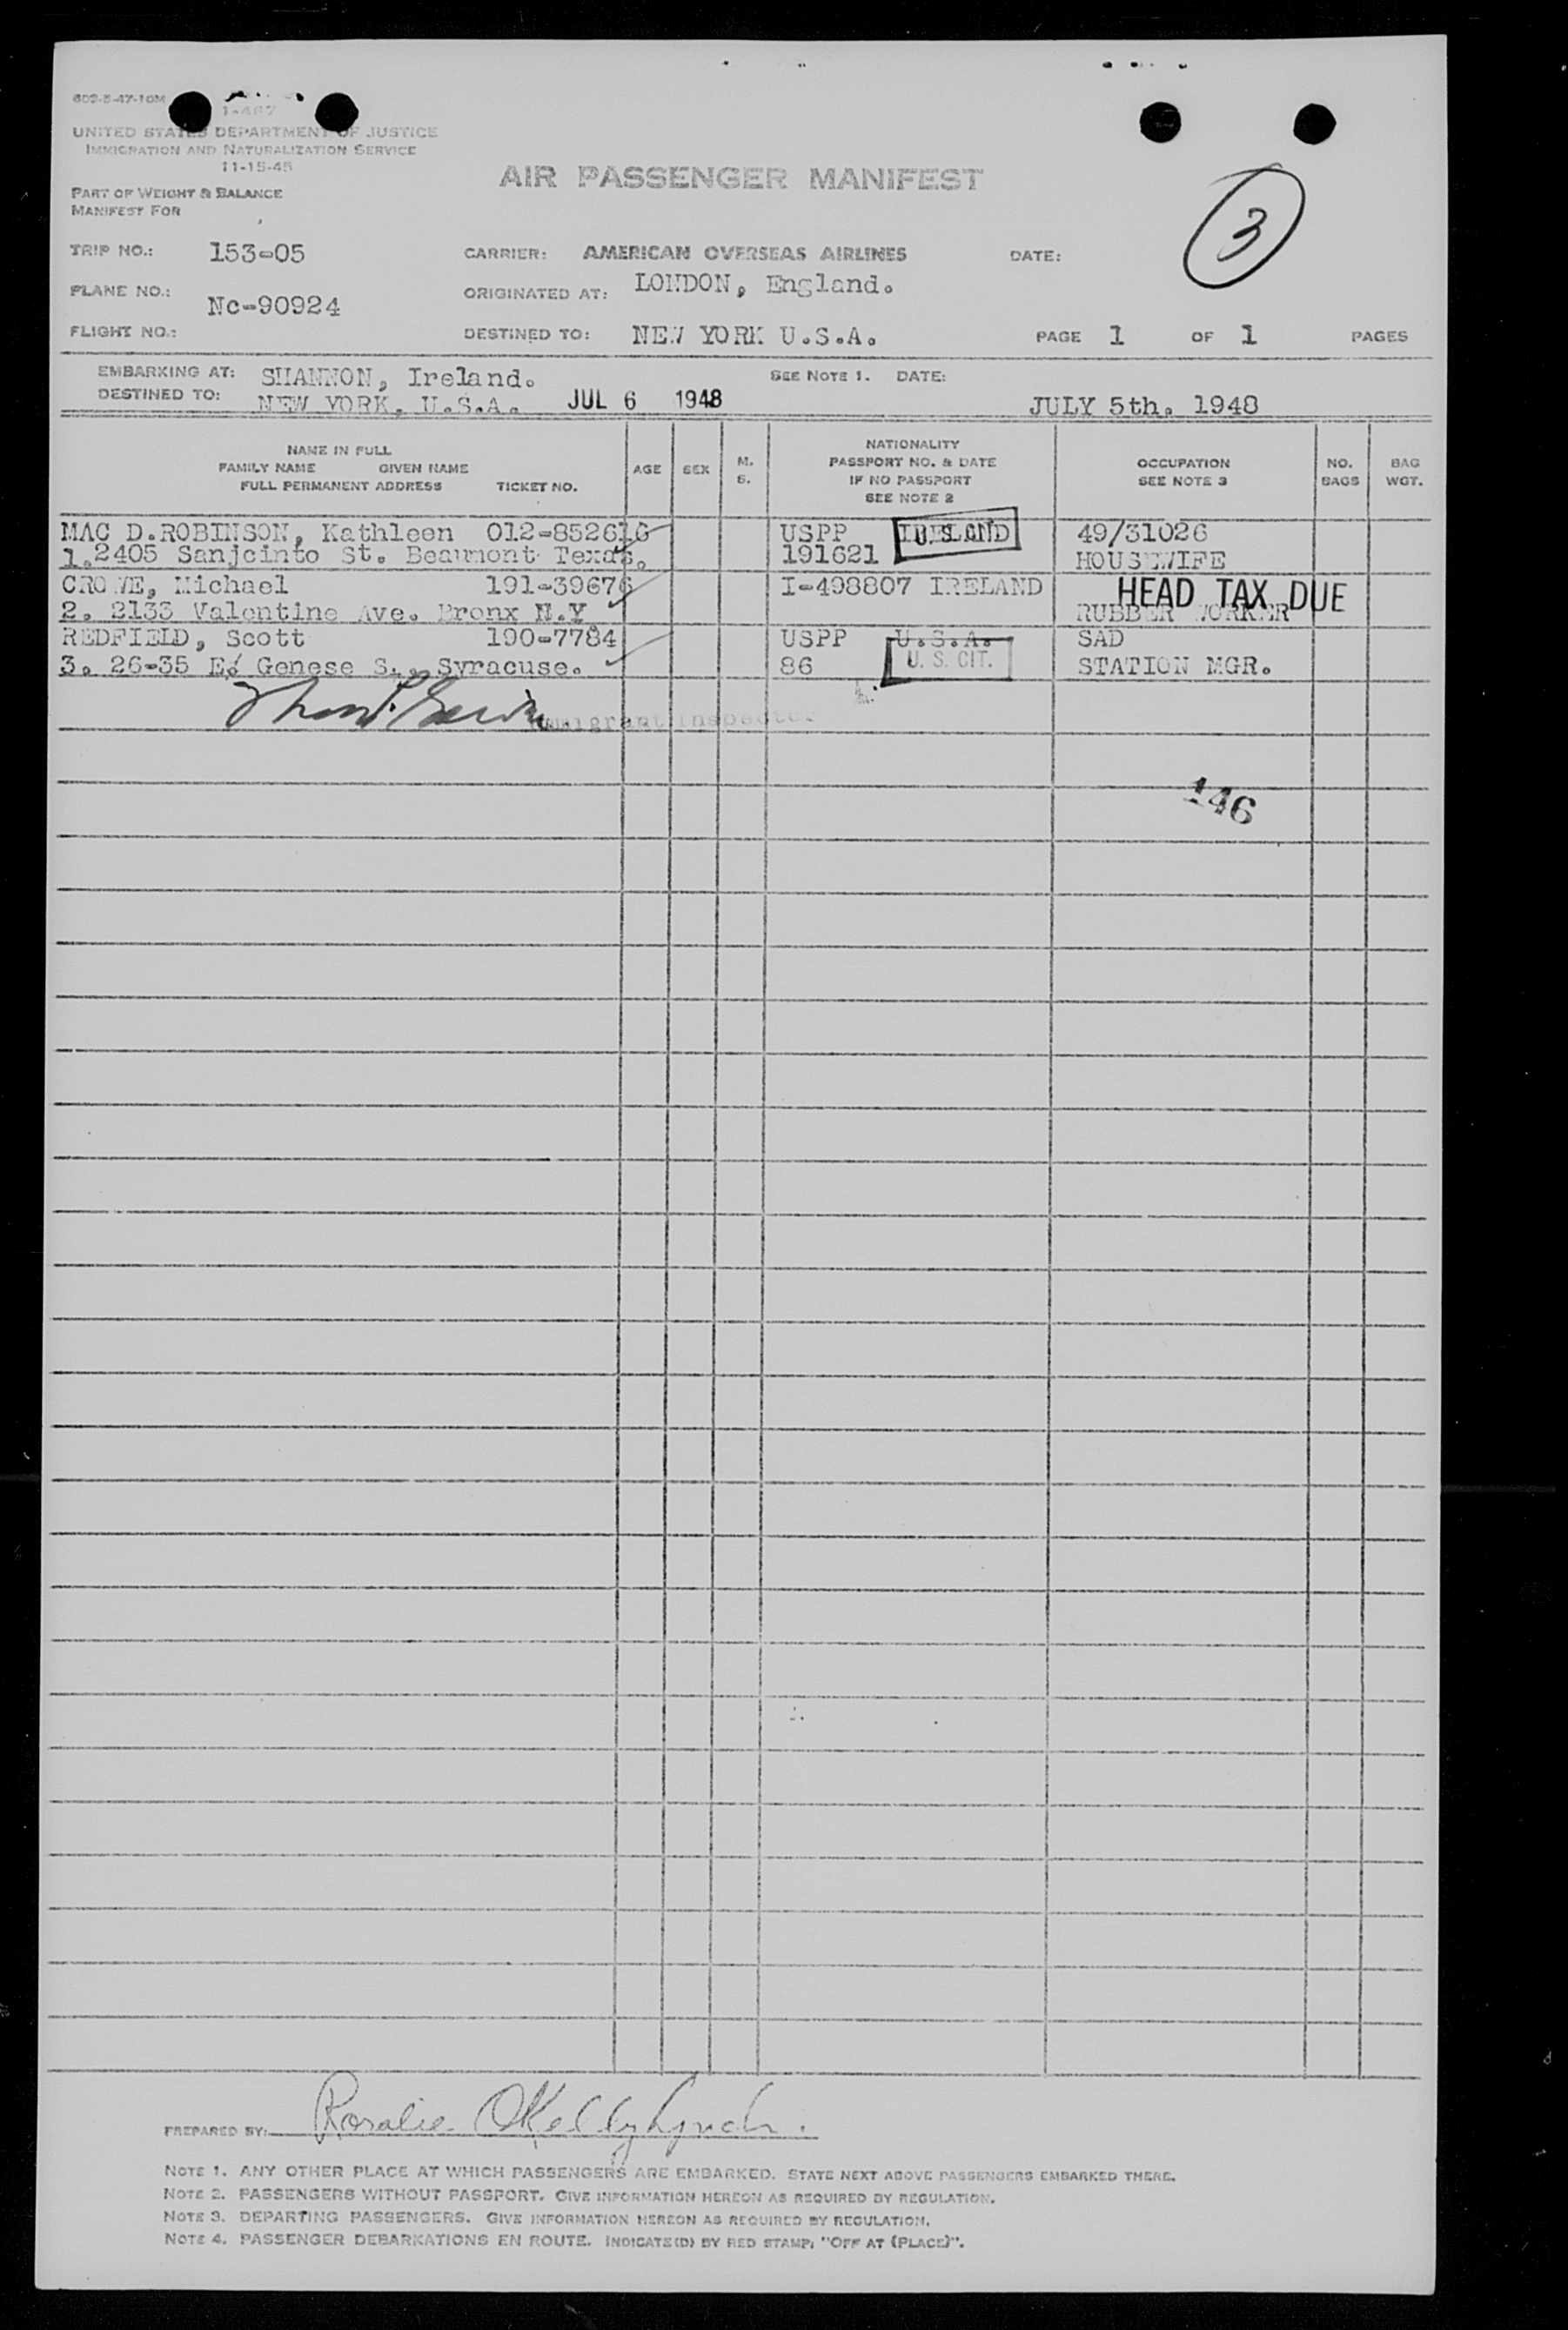 609-5-47-10M
UNITED STATES DEPARTMENT OF JUSTICE
IMMIGRATION AND NATURALIZATION SERVICE
11-15-45
PART OF WEIGHT & BALANCE
MANIFEST FOR
AIR PASSENGER MANIFEST
3
TRIP NO.: 153-05 CARRIER: AMERICAN OVERSEAS AIRLINES DATE:
PLANE NO.: Nc-90924 ORIGINATED AT: LONDON, England.
FLIGHT NO.: DESTINED TO: NEW YORK U.S.A. PAGE 1 OF 1 PAGES
EMBARKING AT: SHANNON, Ireland. SEE NOTE 1. DATE:
DESTINED TO: NEW YORK, U.S.A. JUL 6 1948 JULY 5th. 1948
NAME IN FULL
FAMILY NAME GIVEN NAME
FULL PERMANENT ADDRESS TICKET NO.
AGE SEX M. S.
NATIONALITY
PASSPORT NO. & DATE
IF NO PASSPORT
SEE NOTE 2
OCCUPATION
SEE NOTE 3
NO. BAGS
BAG WGT.
MAC D.ROBINSON, Kathleen 012-852616 USPP IRELAND 49/31026
1. 2405 Sanjcinto St. Beaumont Texas. 191621 HOUSEWIFE
CROWE, Michael 191-39676 I-498807 IRELAND HEAD TAX DUE
2. 2133 Valentine Ave. Bronx N.Y RUBBER WORKER
REDFIELD, Scott 190-7784 USPP U.S.A. SAD
3. 26-35 E. Genese S. Syracuse. 86 U. S. CIT. STATION MGR.
Immigrant Inspector
146
PREPARED BY: Rosalie OKelly Lynch.
NOTE 1. ANY OTHER PLACE AT WHICH PASSENGERS ARE EMBARKED. STATE NEXT ABOVE PASSENGERS EMBARKED THERE.
NOTE 2. PASSENGERS WITHOUT PASSPORT. GIVE INFORMATION HEREON AS REQUIRED BY REGULATION.
NOTE 3. DEPARTING PASSENGERS. GIVE INFORMATION HEREON AS REQUIRED BY REGULATION.
NOTE 4. PASSENGER DEBARKATIONS EN ROUTE. INDICATE(D) BY RED STAMP, "OFF AT (PLACE)".